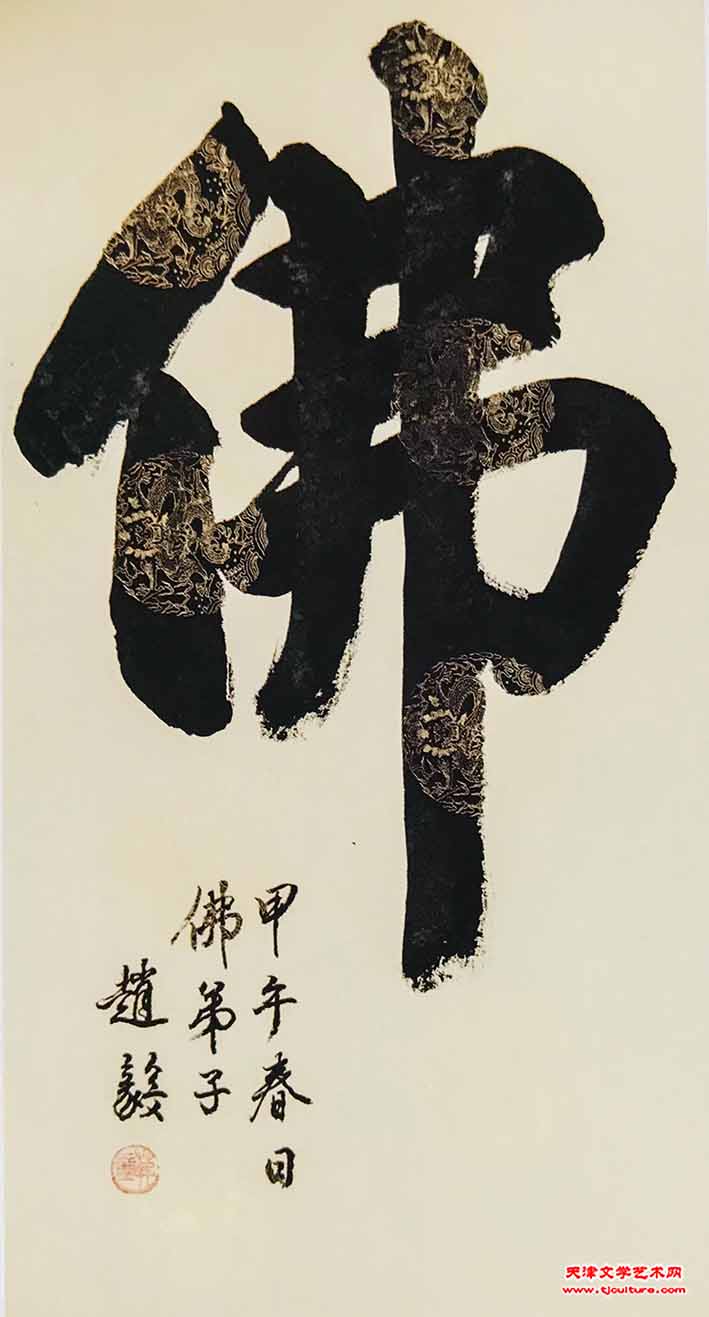 佛
甲午春日
佛弟子
趙毅
天津文学艺术网
www.tjculture.com